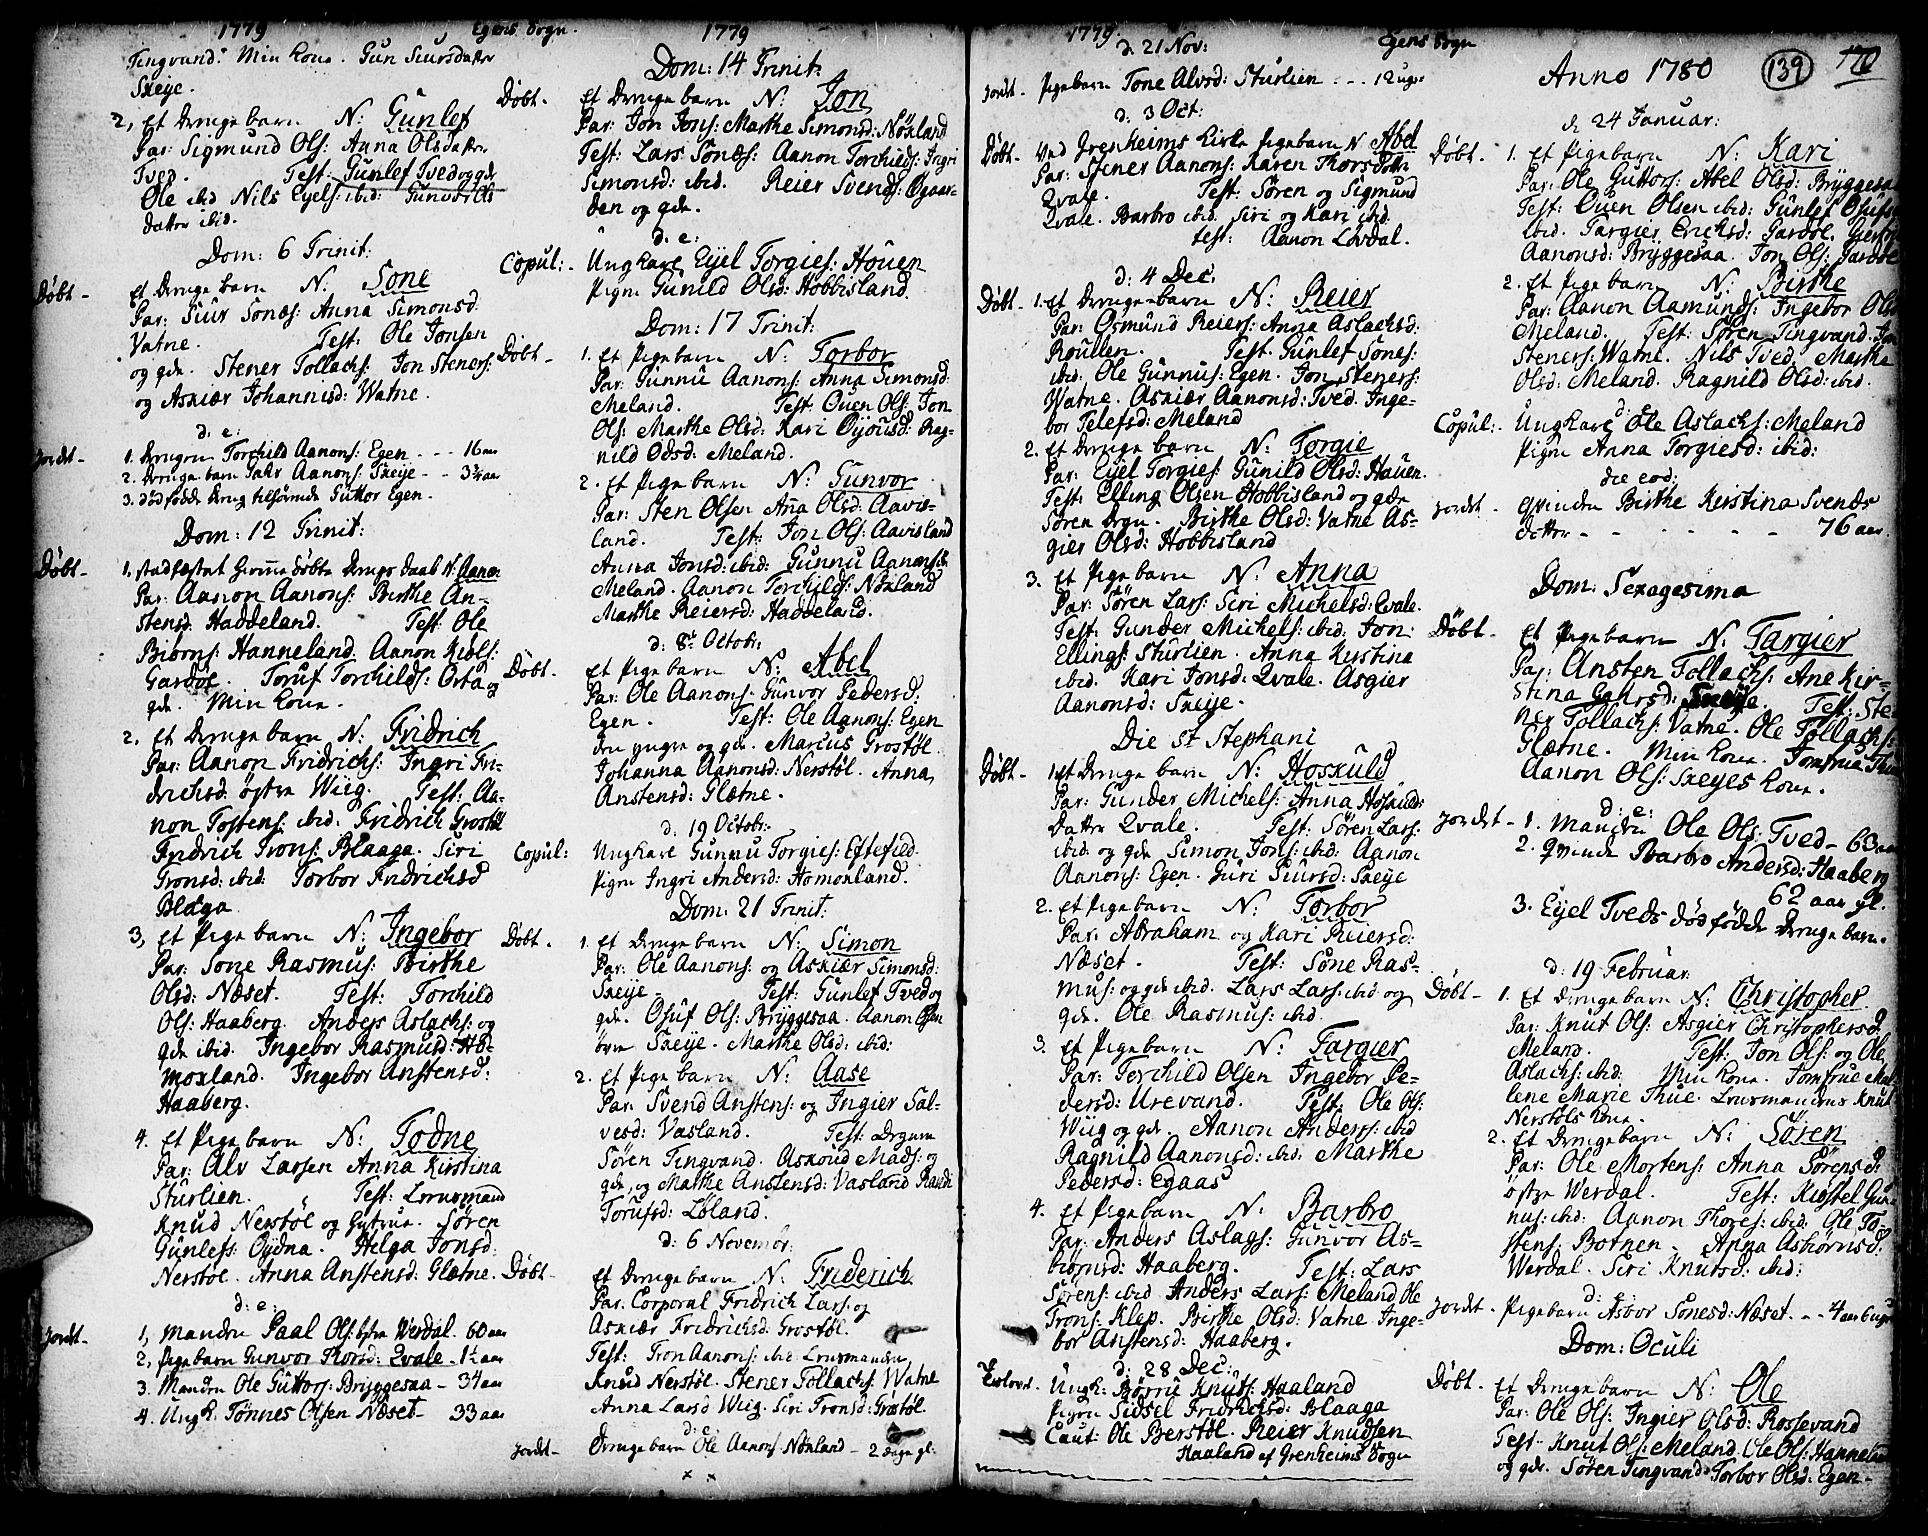 1779 Egens Sogn.
Tingvand. Min Kone. Gun Siursdatter
Skeye.
2, Et Drengebarn N: Gunlef
Par: Sigmund Ols: Anna Olsdatter
Tved. Test: Gunlef Tved og gde
Ole ibid Nils Eyels: ibid: Gunvor Ols
datter ibid.
Dom: 6 Trinit:
Døbt - Et Drengebarn N: Sone
Par: Siur Sones: Anna Simonsd:
Vatne. Test: Ole Jonsen
og gde. Stener Tollachs: Jon Steners:
og Askiær Johannisd: Watne.
d: e:
Jordt - 1. Drengen Torchild Aanons: Egen - - - 16 aar
2. Drengebarn Aanons: Skeye - - 3¼ aar
3. dødfødde Dreng tilhørende Guttor Egen.
Dom: 12 Trinit:
Døbt - 1. stadfæstet hiemme døbte Drengs Daab N: Aanon
Par: Aanon Aanons: Birthe An-
stensd: Haddeland. Test: Ole
Biørns: Hanneland. Aanon Kidls:
Gardøl. Toruf Torchilds: Orta og
gde. Min Kone.
2, Et Drengebarn N: Fridrich
Par: Aanon Fridrichs: Ingri Fri-
drichsd: østre Wiig. Test: Aa-
non Tostens: ibid: Fridrich Grostøl
Fridrich Trons: Blaaga. Siri
Tronsd: ibid: Torbor Fridrichsd
Blaga
3, Et Pigebarn N: Ingebor
Par: Sone Rasmus: Birthe
Olsd: Næset. Test: Torchild
Ols: Haaberg. Anders Aslachs: og
gde ibid. Ingebor Rasmusd: Ho-
moxland. Ingebor Anstensd:
Haaberg.
4. Et Pigebarn N: Todne
Par: Alv Larsen Anna Kirstina
Sturlien. Test: Lensmand
Knud Nerstøl og Hustrue. Søren
Gunlefs: Øydna. Helga Jonsd:
Nerstøl. Anna Anstensd: Glætne.
d: e:
Jordt - 1, Manden Paal Ols: østre Werdal. 60 aar
2, Pigebarn Gunvor Thorsd: Qvale - 1½ aar
3. Manden Ole Guttors: Bryggesaa - 34 aar
4. Ungk: Tønnes Olsen Næset - 33 aar
1779
Dom: 14 Trinit:
Døbt - Et Drengebarn N: Jon
Par: Jon Jons: Marthe Simonsd: Nøxland
Test: Lars Sones: Aanon Torchilds: Ingri
Simonsd: ibid. Reier Svends: Ogaar-
den og gde.
d: e:
Copul: - Ungkarl Eyel Torgies: Houen
Pigen Gunild Olsd: Hobbisland.
Dom: 17 Trinit:
Døbt - 1. Et Pigebarn N: Torbor
Par: Gunnu Aanons: Anna Simonsd:
Meland. Test: Ouen Ols: Jon
Ols: Marthe Olsd: Kari Øyousd: Rag-
nild Odsd: Meland.
2. Et Pigebarn N: Gunvor
Par: Sten Olsen Aña Olsd: Aavis-
land. Test: Jon Ols: Aavisland
Anna Jonsd: ibid: Gunnu Aanons:
Meland. Aanon Torchilds: Nøxland
Marthe Reiersd: Haddeland.
d: 8. Octobr:
Døbt. Et Pigebarn N: Abel
Par: Ole Aanons: Gunvor Pedersd:
Egen. Test: Ole Aanons: Egen
den yngre og gde. Marcus Grostøl.
Johanna Aanonsd: Nerstøl. Anna
Anstensd: Glætne.
d: 19 Octobr:
Copul: Ungkarl Gunnu Torgies: Eftefield.
Pigen Ingri Andersd: Homoxland.
Dom: 21 Trinit:
Døbt. 1. Et Drengebarn N: Simon
Par: Ole Aanons: og Askiær Simonsd:
Skeije - Test: Gunlef Tved og
gde. Osuf Ols: Bryggesaa. Aanon Olsen
øvre Skeije. Marthe Olsd: ibid:
2. Et Pigebarn N: Aase
Par: Svend Anstens: og Ingier Sal-
vesd: Vasland. Test: Degnen
Søren Tingvand. Askoud Mads: og
gde, og Marthe Anstensd: Vasland Randi
Torufsd: Løland.
d: 6 Novembr:
Døbt - Et Drengebarn N: Friderich.
Par: Corporal Fridrich Lars: og
Askiær Fridrichsd: Grostøl.
Test: Tron Aanons: ibid: Lensmanden
Knud Nerstøl. Stener Tollachs: Watne
Anna Larsd Wiig. Siri Tronsd: Grostøl.
d: e:
Jordt - Drengebarn Ole Aanons: Nöxland - 2 dage gl:
1779 Egens Sogn
d. 21 Nov:
Jordt - Pigebarn Tone Alvsd: Sturlien - - - 12 uger
d: 3 Oct:
Døbt - Ved Grenheims Kirke Pigebarn N Abel
Par: Stener Aanons: Karen Thorsdotter
Qvale. Test: Søren og Sigmund
Qvale. Barbro ibid. Siri og Kari ibid.
Test: Aanon Løvdal.
d: 4 Dec:
Døbt - 1. Et Drengebarn N: Reier
Par: Osmund Reiers: Anna Aslachsd:
Roullen. Test: Gunlef Sones:
ibid. Ole Gunnus: Egen. Jon Steners:
Watne. Askiær Aanonsd: Tved. Inge-
bor Telefsd: Meland
2. Et Drengebarn N: Torgie
Par: Eyel Torgies: Gunild Olsd: Houen.
Test: Elling Olsen Hobbisland og gde
Søren Degn. Birthe Olsd: Vatne As-
gier Olsd: Hobbisland
3. Et Pigebarn N: Anna
Par: Søren Lars: Siri Michelsd: Qvale.
Test: Gunder Michels: ibid: Jon
Ellings: Sturlien. Anna Kirstina
ibid. Kari Jonsd: Qvale. Asgier
Aanonsd: Skeije.
Die St Stephani
Døbt - 1. Et Drengebarn N: Hoskuld
Par: Gunder Michels: Anna Hoskulds
datter Qvale. Test: Søren Lars:
ibid. og gde Simon Jons: ibid: Aanon
Aanons: Egen. Guri Siursd: Skeije
2. Et Pigebarn N: Torbor
Par: Abraham og Kari Reiersd:
Næset. Test: Sone Ras-
mus: og gde ibid. Lars Lars: ibid og
gde. Ole Rasmus: ibid.
3. Et Pigebarn N: Targier
Par: Torchild Olsen Ingebor Pe-
dersd: Urevand. Test: Ole Ols:
Wiig og gde. Aanon Anders: ibid
Ragnild Aanonsd: ibid: Marthe
Pedersd: Egaas
4. Et Pigebarn N: Barbro
Par: Anders Aslags: Gunvor As-
biørnsd: Haaberg. Test: Lars
Sørens: ibid Anders Lars: Meland Ole
Trons: Klep. Birthe Olsd: Vatne Inge-
bor Anstensd: Haaberg.
d: 28 Dec:
Trolovet. Ungk: Børrie Knuts: Haaland
Pigen Sidsel Fridrichsd: Blaaga
Caut: Ole Berstøl. Reier Knudsen
Haaland af Grenheims Sogn
139 170
Anno 1780
d: 24 Januar:
Døbt. 1. Et Pigebarn N: Kari
Par: Ole Guttors: Abel Olsd: Bryggesaa
Test: Ouen Olsen ibid: Gunlef Osufs:
ibid. Targier Erichsd: Gardøl.
Aanonsd: Bryggesaa. Jon Ols: Gardøl
2. Et Pigebarn N: Birthe
Par: Aanon Aamunds: Ingebor Olsd
Meland. Test: Søren Tingvand. Jon
Steners: Watne. Nils Tved. Marthe
Olsd: Meland. Ragnild Olsd: ibid.
d: e:
Copul: - Ungkarl Ole Aslachs: Meland
Pigen Anna Torgiesd: ibid:
Die eod:
Jordt - Qvinden Birthe Kirstina Svends
datter - - - - - - 76 aar.
Dom: Sexagesima
Døbt - Et Pigebarn N: Targier
Par: Ansten Tollachs: Ane Kir-
stina Gahrsd: Skeije. Test: Ste-
ner Tollachs: Vatne. Ole Tollachs:
Glætne. Min Kone. Jomfrue Thue
Aanon Ols: Skeyes Kone.
d: e:
Jordt - 1. Manden Ole Ols: Tved - 63 aar
2. Qvinde Barbro Andersd: Haaberg
62 aar gl.
3. Eyel Tveds dødfødde Drengebarn.
d: 19 Februar:
Døbt - 1. Et Drengebarn N: Christopher.
Par: Knut Ols: Asgier Christophersd:
Meland. Test: Jon Ols: og Ole
Aslachs: ibid: Min Kone. Jomfrue Mat-
lene Marie Thue. Lensmandens Knut
Nerstøls Kone.
2. Et Drengebarn N: Søren
Par: Ole Mortens: Anna Sørensd:
østre Werdal. Test: Kiøstel Gun-
nus: ibid: Aanon Thores: ibid. Ole To-
stens: Botnen. Anna Asbiørnsd:
Werdal. Siri Knutsd: ibid:
d: e:
Jordt - Pigebarn Asbor Sonesd: Næset. - - 4 aar 6 uger
Dom: Oculi
Døbt. Et Drengebarn N: Ole
Par: Ole Ols: Ingier Olsd: Rossevand
Test. Knut Ols: Meland. Ole Ols: Hanneland
og gde. Søren Tingvand. Torbor Olsd: Egen -